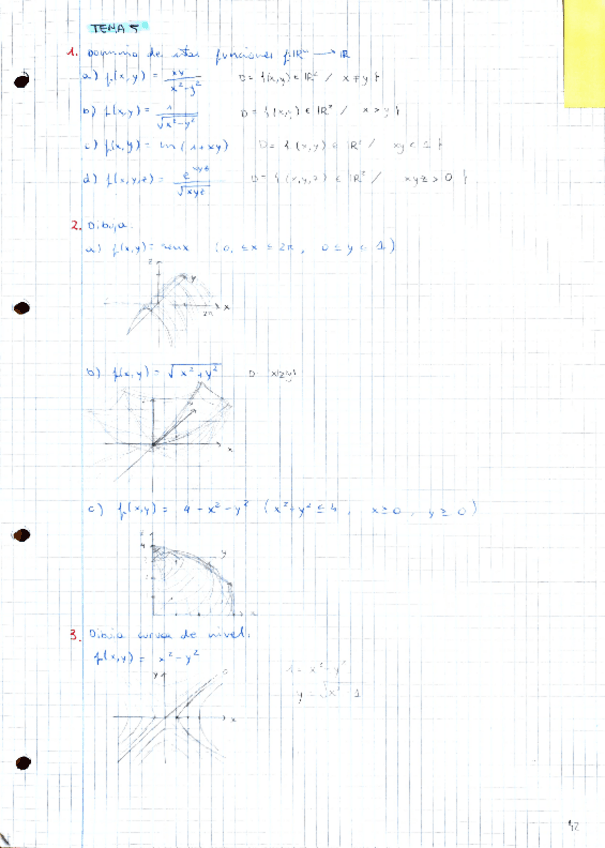 TEMA 5
1. Dominio de estas funciones f: ℝⁿ → ℝ
a) f(x,y) = xy / x²-y² D = {(x,y) ∈ ℝ² / x ≠ y}
b) f(x,y) = 1 / √x²-y² D = {(x,y) ∈ ℝ² / x > y}
c) f(x,y) = ln(1+xy) D = {(x,y) ∈ ℝ² / xy
d) f(x,y,z) = e^xyz / √xyz D = {(x,y,z) ∈ ℝ² / xyz > 0}
2. Dibuja:
a) f(x,y) = senx (0 ≤ x ≤ 2π, 0 ≤ y ≤ 1)
z
y
x
2π
b) f(x,y) = √x²+y² D
x
c) f(x,y) = 4 - x² - y² (x²+y² ≤ 4, x ≥ 0, y ≥ 0)
4
y
3. Dibuja curvas de nivel:
f(x,y) = x² - y²
y
x
y = √x² - 1
42